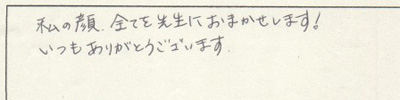 私の顔、全てを先生におまかせします!
いつもありがとうございます.